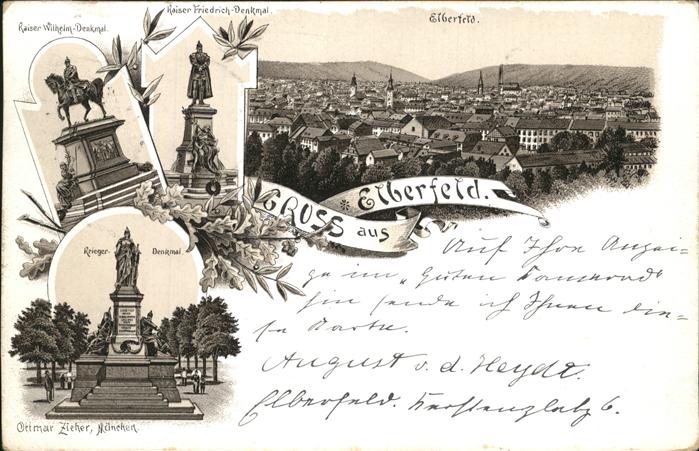 Kaiser Wilhelm-Denkmal.
Kaiser Friedrich-Denkmal.
Elberfeld.
GRUSS aus Elberfeld.
Krieger- Denkmal.
Auf Ihre Anzei-
ge im „Guten Kamerad“
hin sende ich Ihnen die-
se Karte.
August v. d. Heydt.
Elberfeld. Kerstenplatz 6.
Ottmar Zieher, München.